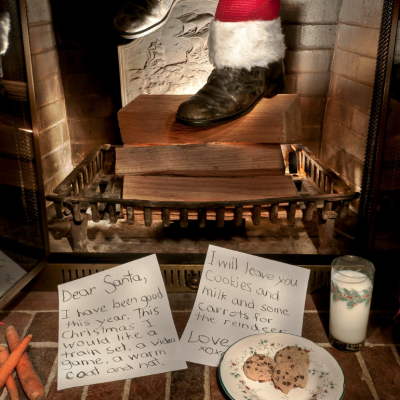 Dear Santa,
I have been good
this year. This
Christmas I
would like a
train set, a video
game, a warm
coat and hat.
I will leave you
Cookies and
milk and some
carrots for
the reindeer
Love
xox